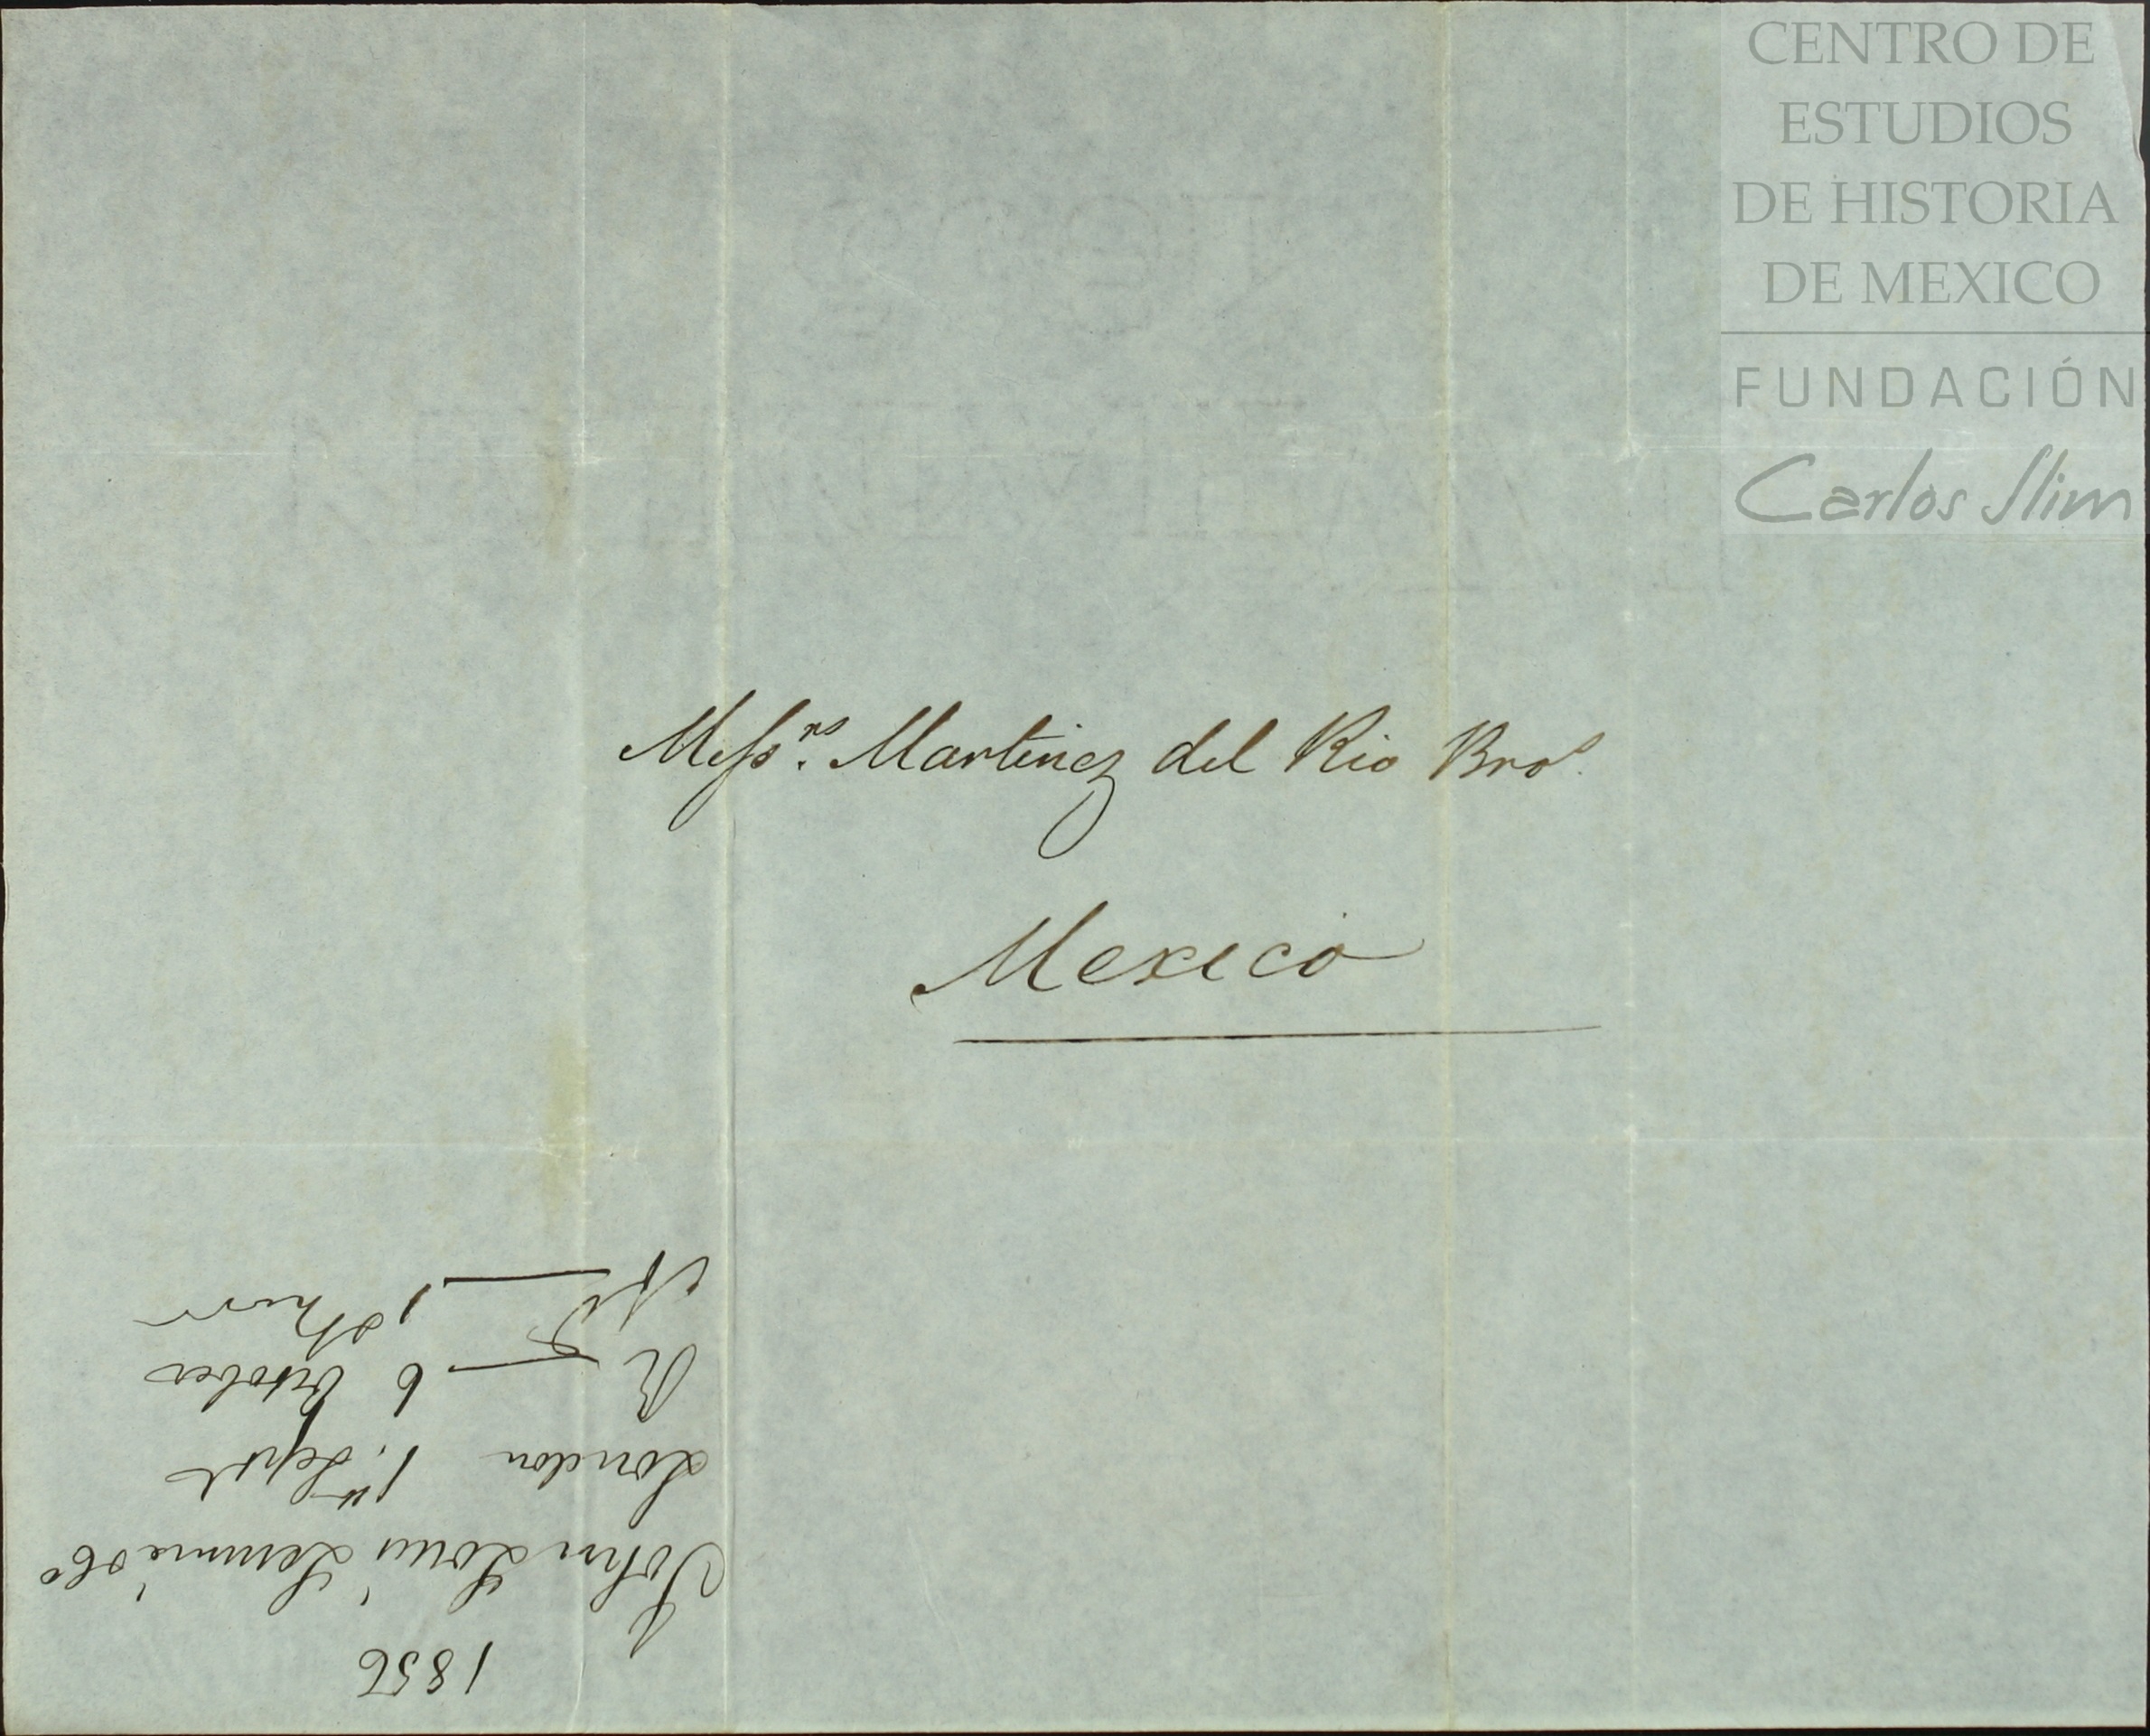 CENTRO DE
ESTUDIOS
DE HISTORIA
DE MEXICO
FUNDACIÓN
Carlos Slim
Messrs. Martinez del Rio Bros.
Mexico
1856
John Louis Lemmé & Co
London 1st. Sept
R 6 October
1st